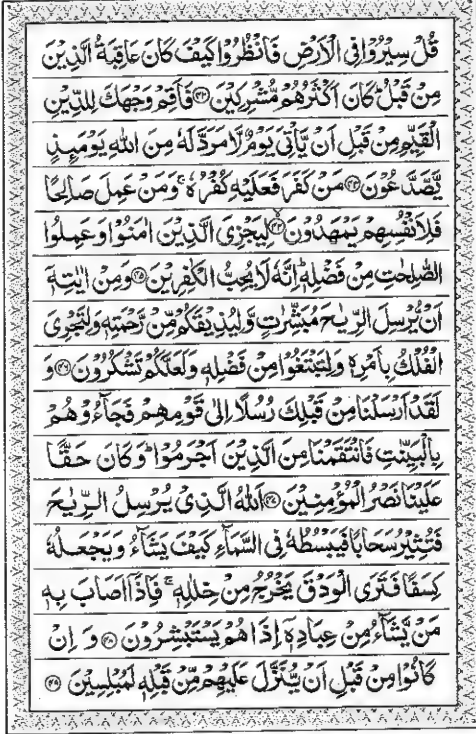 قُلْ سِيْرُوْا فِى الْاَرْضِ فَانْظُرُوْا كَيْفَ كَانَ عَاقِبَةُ الَّذِيْنَ
مِنْ قَبْلُ ؕ كَانَ اَكْثَرُهُمْ مُّشْرِكِيْنَ ۴۲ فَاَقِمْ وَجْهَكَ لِلدِّيْنِ
الْقَيِّمِ مِنْ قَبْلِ اَنْ يَّاْتِىَ يَوْمٌ لَّا مَرَدَّ لَهٗ مِنَ اللّٰهِ يَوْمَئِذٍ
يَّصَّدَّعُوْنَ ۴۳ مَنْ كَفَرَ فَعَلَيْهِ كُفْرُهٗ ۚ وَمَنْ عَمِلَ صَالِحًا
فَلِاَنْفُسِهِمْ يَمْهَدُوْنَ ۴۴ لِيَجْزِىَ الَّذِيْنَ اٰمَنُوْا وَعَمِلُوا
الصّٰلِحٰتِ مِنْ فَضْلِهٖ ؕ اِنَّهٗ لَا يُحِبُّ الْكٰفِرِيْنَ ۴۵ وَمِنْ اٰيٰتِهٖۤ
اَنْ يُّرْسِلَ الرِّيٰحَ مُبَشِّرٰتٍ وَّلِيُذِيْقَكُمْ مِّنْ رَّحْمَتِهٖ وَلِتَجْرِىَ
الْفُلْكُ بِاَمْرِهٖ وَلِتَبْتَغُوْا مِنْ فَضْلِهٖ وَلَعَلَّكُمْ تَشْكُرُوْنَ ۴۶ وَ
لَقَدْ اَرْسَلْنَا مِنْ قَبْلِكَ رُسُلًا اِلٰى قَوْمِهِمْ فَجَآءُوْهُمْ
بِالْبَيِّنٰتِ فَانْتَقَمْنَا مِنَ الَّذِيْنَ اَجْرَمُوْا ؕ وَكَانَ حَقًّا
عَلَيْنَا نَصْرُ الْمُؤْمِنِيْنَ ۴۷ اَللّٰهُ الَّذِىْ يُرْسِلُ الرِّيٰحَ
فَتُثِيْرُ سَحَابًا فَيَبْسُطُهٗ فِى السَّمَآءِ كَيْفَ يَشَآءُ وَيَجْعَلُهٗ
كِسَفًا فَتَرَى الْوَدْقَ يَخْرُجُ مِنْ خِلٰلِهٖ ۚ فَاِذَاۤ اَصَابَ بِهٖ
مَنْ يَّشَآءُ مِنْ عِبَادِهٖۤ اِذَا هُمْ يَسْتَبْشِرُوْنَ ۴۸ وَ اِنْ
كَانُوْا مِنْ قَبْلِ اَنْ يُّنَزَّلَ عَلَيْهِمْ مِّنْ قَبْلِهٖ لَمُبْلِسِيْنَ ۴۹